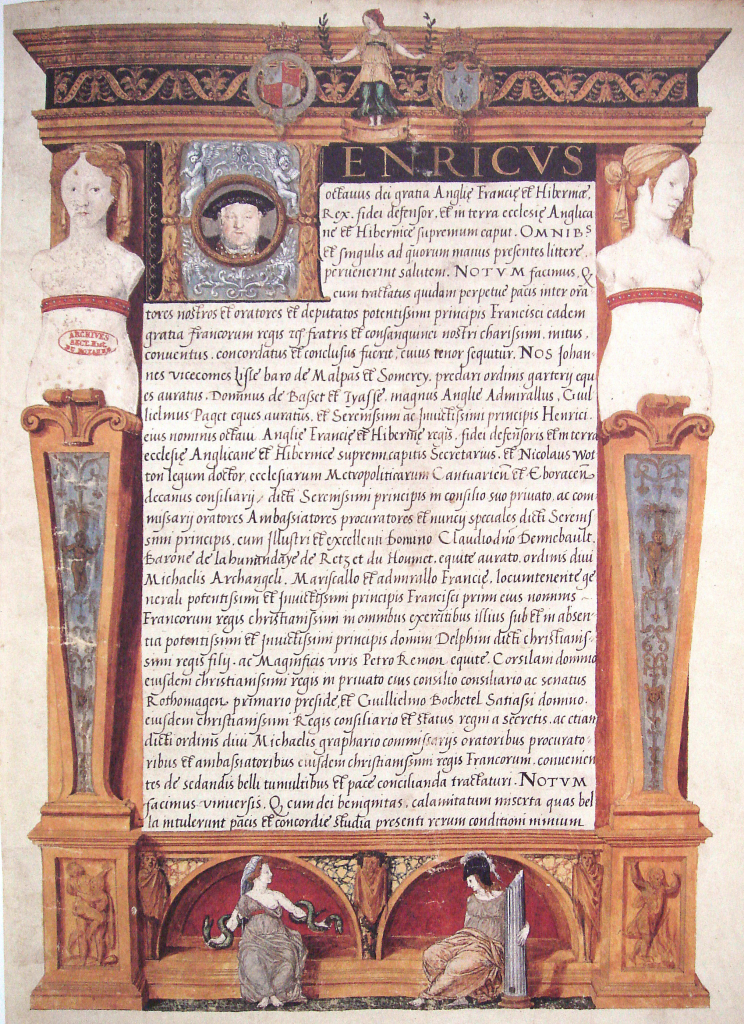 HENRICVS
octauus dei gratia Anglię Francię et Hiberniæ,
Rex, fidei defensor, et in terra ecclesię Anglica
ne et Hibernicę supremum caput. OMNIBS
et singulis ad quorum manus presentes littere,
peruenerint salutem. NOTVM facimus, Q
cum tractatus quidam perpetue pacis inter ora
tores nostros et oratores et deputatos potentissimi principis Francisci eadem
gratia Francorum regis fratris et consanguinei nostri charissimi, initus,
conuentus, concordatus et conclusus fuerit, cuius tenor sequitur. NOS Johan-
nes vicecomes Lisle baro de Malpas et Somerey, preclari ordinis garterij equ
es auratus, Dominus de Basset et Tyasse, magnus Anglie Admirallus, Guil
lielmus Paget eques auratus, et Serenissimi ac Inuictissimi principis Henrici,
eius nominis octaui Anglie Francie et Hibernie regis, fidei defensoris et in terra
ecclesię Anglicane et Hibernice supremi capitis Secretarius, et Nicolaus Wot
ton legum doctor, ecclesiarum Metropoliticarum Cantuarien et Eboracen
decanus consiliarij, dicti Serenissimi principis in consilio suo priuato, ac com
missarij oratores Ambassiatores procuratores et nuncij speciales dicti Sereniss
simi principis, cum Illustri et excellenti Domino Claudio dno Dennebault,
Barone de la hunandaye de Retz et du Hommet, equite aurato, ordinis diui
Michaelis Archangeli, Mariscallo et admirallo Francie, locumtenente ge
nerali potentissimi et Inuictissimi principis Francisci primi eius nominis
Francorum regis christianissimi in omnibus exercitibus illius sub et in absen
tia potentissimi et Inuictissimi principis domini Delphini dicti christianis-
simi regis filij, ac Magnificis viris Petro Remon equite, Corsilam domino
eiusdem christianissimi regis in priuato eius consilio consiliario ac senatus
Rothomagen primario preside, et Guillielmo Bochetel Satiassi domino,
eiusdem christianissimi Regis consiliario et status regni a secretis, ac etiam
dicti ordinis diui Michaelis graphario commissarijs oratoribus procurato-
ribus et ambassiatoribus eiusdem christianissimi regis Francorum, conuenien
tes de sedandis belli tumultibus et pace concilianda tractaturi. NOTVM
facimus vniuersis, Q cum dei benignitas, calamitatum miserta quas bel
la intulerunt pacis et concordie studia presenti rerum conditioni nimium
ARCHIVES
SECT. HIST.
DU ROYAUME